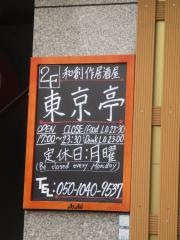 2F 和創作居酒屋
東京亭
OPEN CLOSE(Food L.O 22:30
17:00～23:30 (Drink L.O 23:00
定休日:月曜
(Be closed every Monday)
TEL:050-1040-9537
Asahi